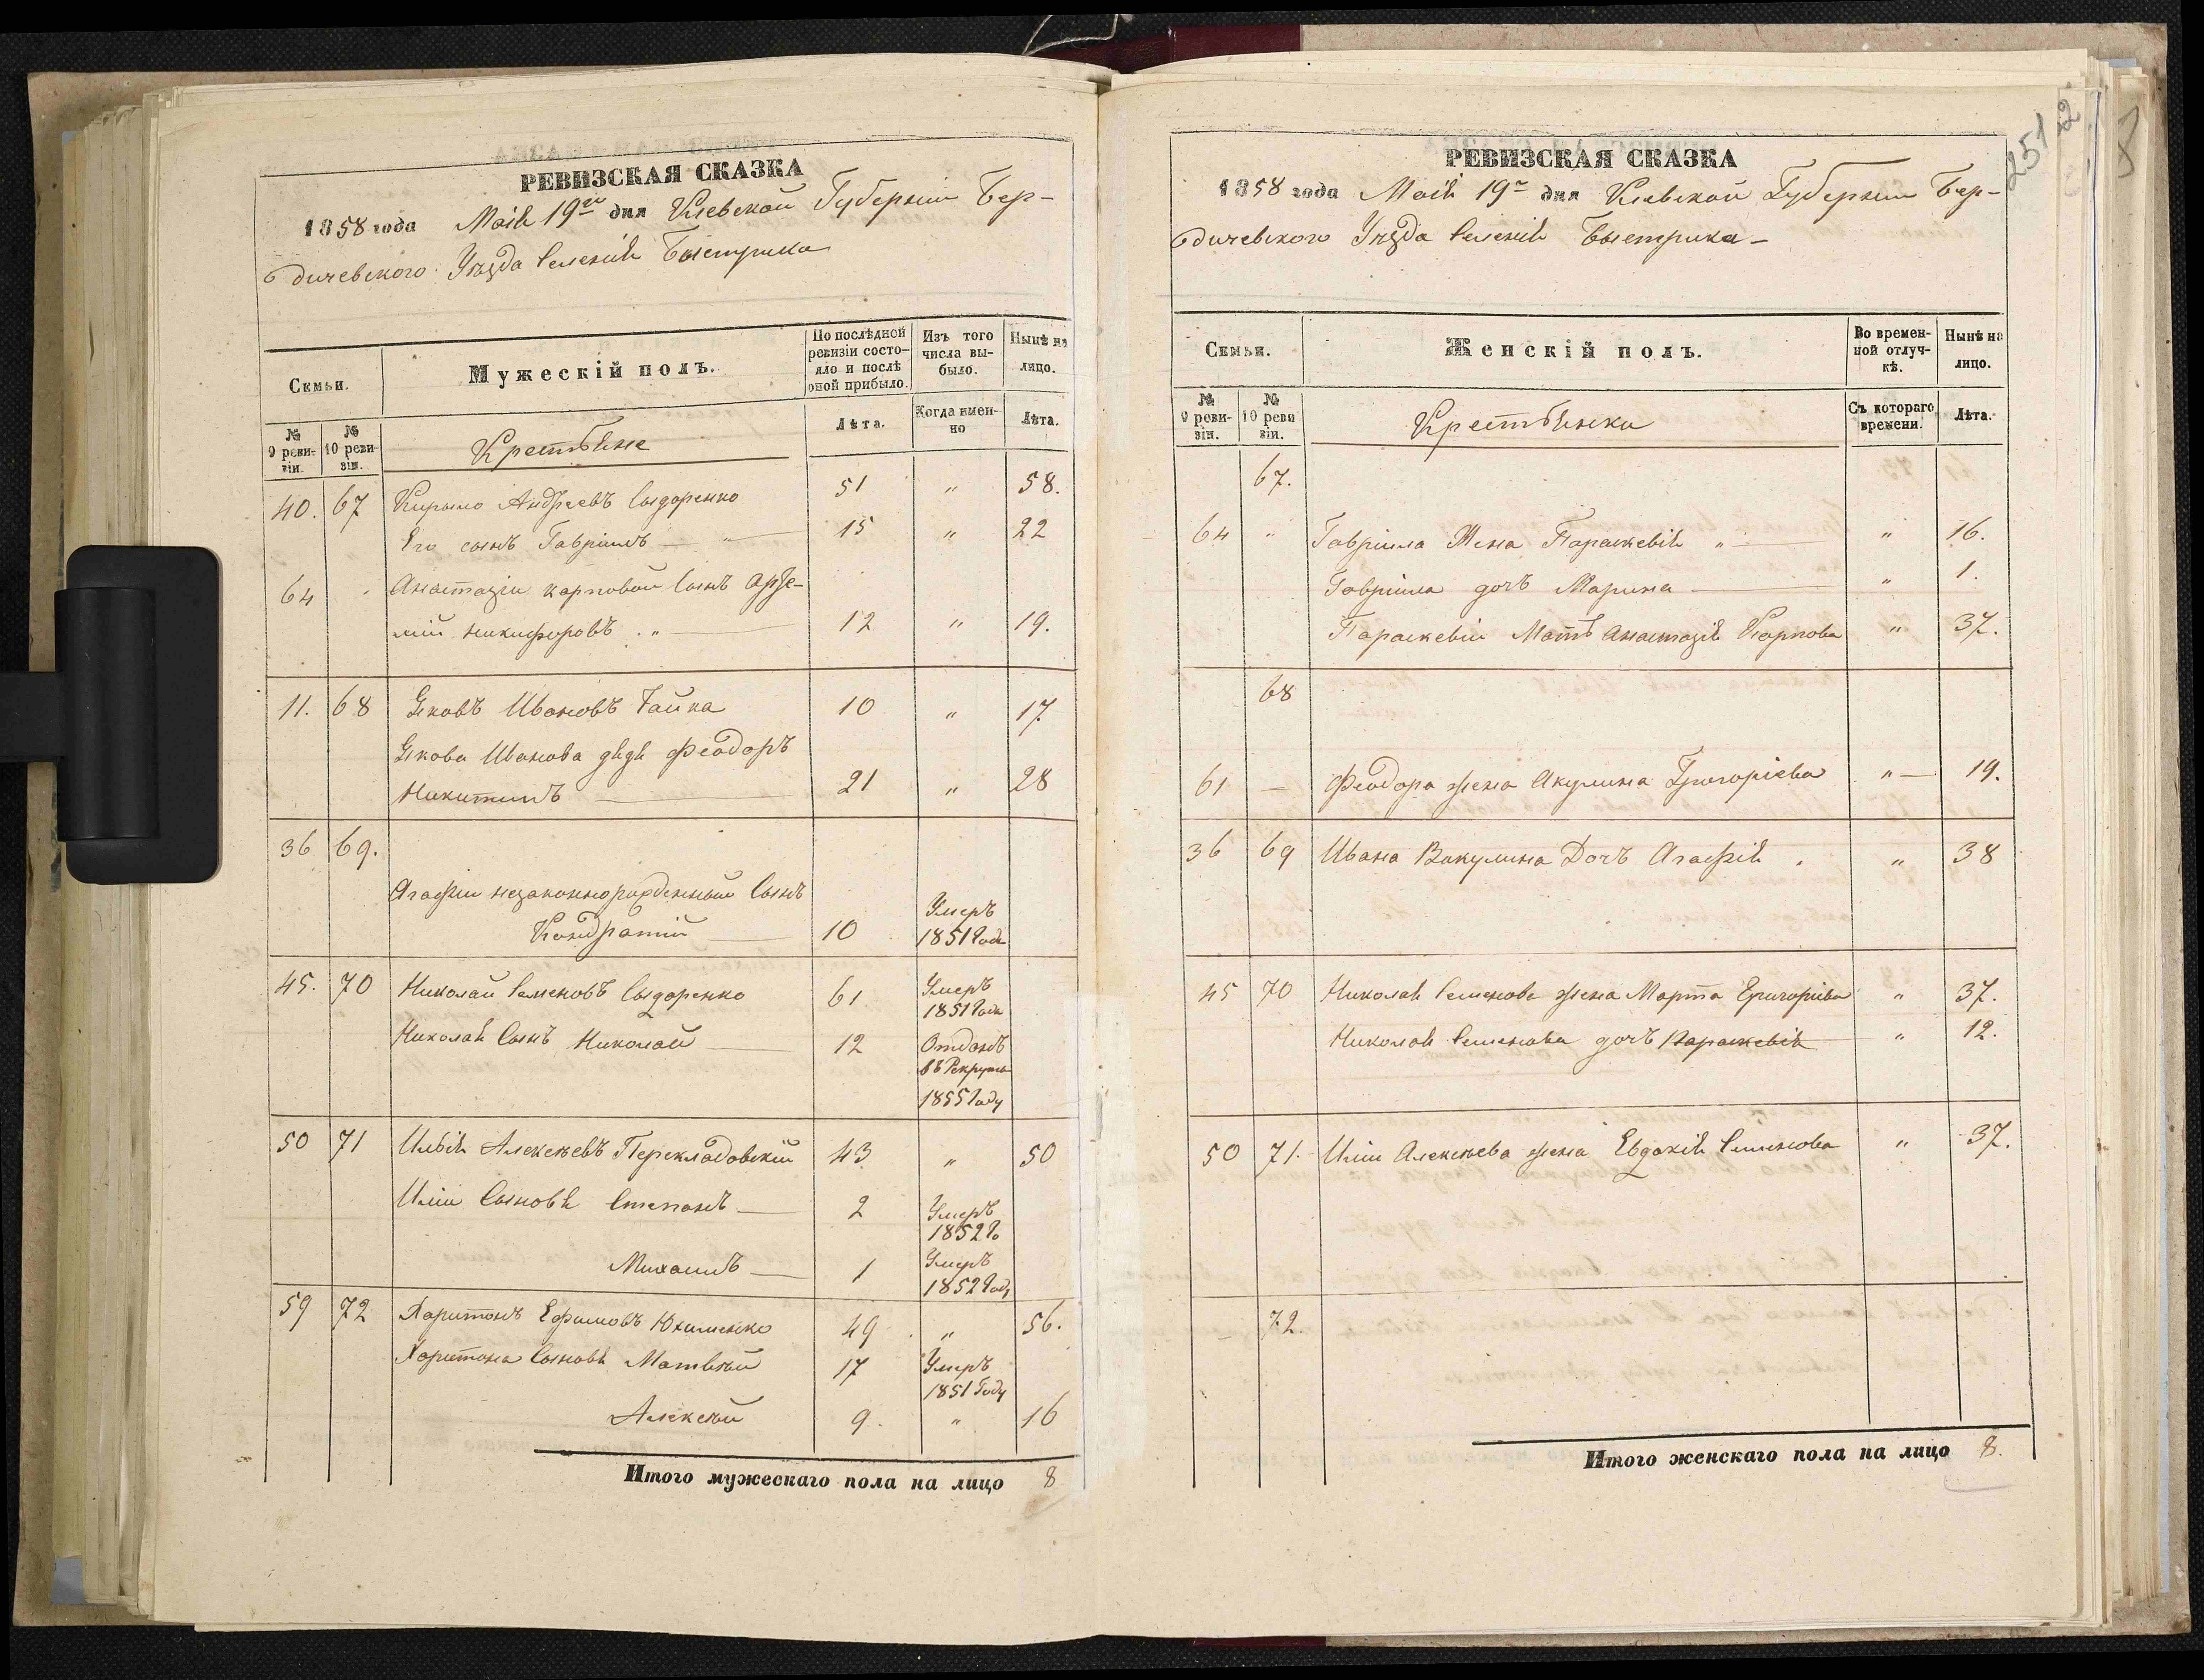 РЕВИЗСКАЯ СКАЗКА
1858 года Маія 19го дня Кіевской Губерніи Бер-
дичевского Уѣзда Селенія Быстрика
Семьи.
Мужескій полъ.
По послѣдней ревизіи состо-яло и послѣ оной прибыло.
Изъ того числа вы-было.
Нынѣ на лицо.
№ 9 реви-зіи.
№ 10 реви-зіи.
Крестьяне
Лѣта.
Когда имен-но
Лѣта.
40. 67 Кирыло Андреевъ Сыдоренко 51 " 58.
Его сынъ Гавріилъ " 15 " 22
64 " Анастазіи Карповой Сынъ Арте-
мій Никифоровъ " 12 " 19.
11. 68 Яковъ Ивановъ Гайка 10 " 17
Якова Иванова дядя Феодоръ
Никитинъ 21 " 28
36 69.
Агафіи незаконнорожденный Сынъ
Кондратій 10 Умеръ 1851 Года
45. 70 Николай Семеновъ Сыдоренко 61 Умеръ 1851 Года
Николая Сынъ Николай 12 Отданъ въ Рекруты 1855 Году
50 71 Илья Алексѣевъ Перекладовскій 43 " 50
Иліи Сыновья Степанъ 2 Умеръ 1852 Го
Михаилъ 1 Умеръ 1852 Году
59 72 Харитонъ Ефимовъ Юхименко 49 " 56.
Харитона Сыновья Матвѣй 17 Умеръ 1851 Году
Алексѣй 9. " 16
Итого мужескаго пола на лицо 8
251
РЕВИЗСКАЯ СКАЗКА
1858 года Маія 19го дня Кіевской Губерніи Бер-
дичевского Уѣзда Селенія Быстрика
Семьи.
Женскій полъ.
Во времен-ной отлуч-кѣ.
Нынѣ на лицо.
№ 9 реви-зіи.
№ 10 реви-зіи.
Крестьянки
Съ котораго времени.
Лѣта.
67.
64 " Гавріила Жена Параскевія " " 16.
Гавріила дочь Марина " 1.
Параскевіи Мать Анастазія Карпова " 37.
68
61 — Феодора жена Акулина Григоріева " 19.
36 69 Ивана Вакулина Дочь Агафія . " 38
45 70 Николая Семенова жена Марта Григоріева " 37.
Николая Семенова дочь Параскевія " 12.
50 71. Иліи Алексѣева жена Евдокія Семенова " 37.
72.
Итого женскаго пола на лицо 8.